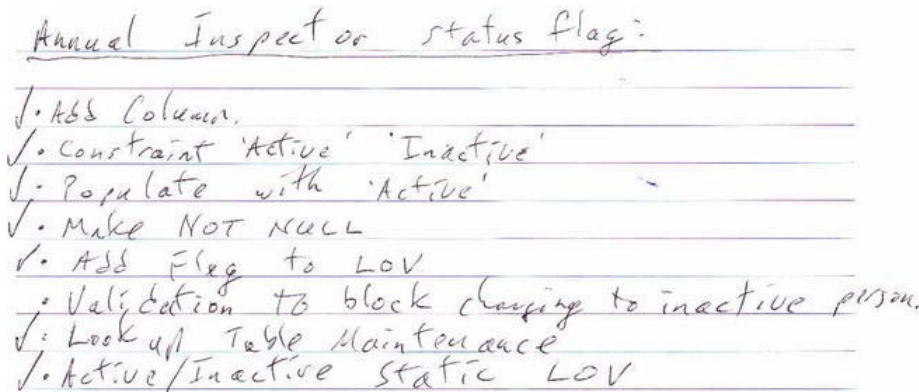 Annual Inspector status flag:
✓• Add Column.
✓• Constraint 'Active' 'Inactive'
✓• Populate with 'Active'
✓• Make NOT NULL
✓• Add Flag to LOV
• Validation to block changing to inactive person.
✓• Look up Table Maintenance
✓• Active/Inactive Static LOV